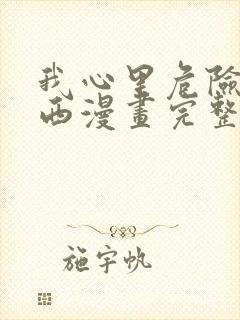 我心里危險
西漫畫完整
施宇帆